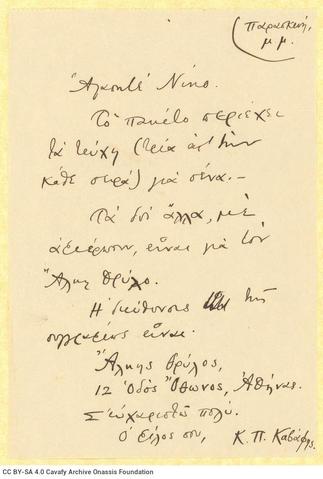 Παρασκευή,
μ.μ.
Ἀγαπητέ Νίκο.
Τό πακέτο περιέχει
τά τεύχη (τρία ἀπ' τήν
κάθε σειρά) γιά σένα.—
Τά δυό ἄλλα, μέ
ἀφιέρωσιν, εἶναι γιά τόν
Ἄλκη Θρύλο.
Ἡ διεύθυνσις τῆς
συγγραφέως εἶναι.
Ἄλκης Θρύλος,
12 Ὁδός Ὄθωνος, Ἀθήνας.
Σ' εὐχαριστῶ πολύ.
Ὁ φίλος σου, Κ. Π. Καβάφης.
CC BY-SA 4.0 Cavafy Archive Onassis Foundation